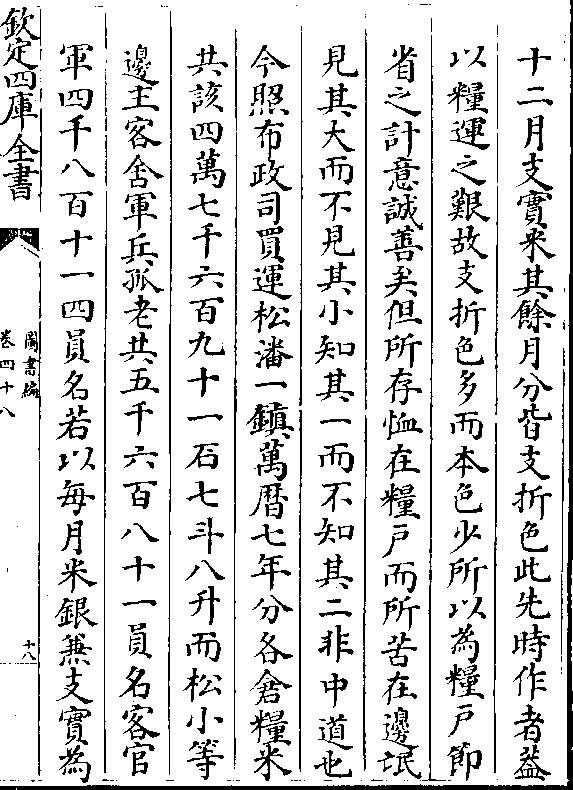 十二月支實米其餘月分皆支折色此先時作者葢
以糧運之艱故支折色多而本色少所以為糧戸節
省之計意誠善矣但所存恤在糧戸而所苦在邊氓
見其大而不見其小知其一而不知其二非中道也
今照布政司買運松潘一鎮萬曆七年分各倉糧米
共該四萬七千六百九十一石七斗八升而松小等
邊主客舍軍兵孤老共五千六百八十一員名客官
軍四千八百十一四員名若以每月米銀兼支實為
欽定四庫全書
圖書編
卷四十八
十八